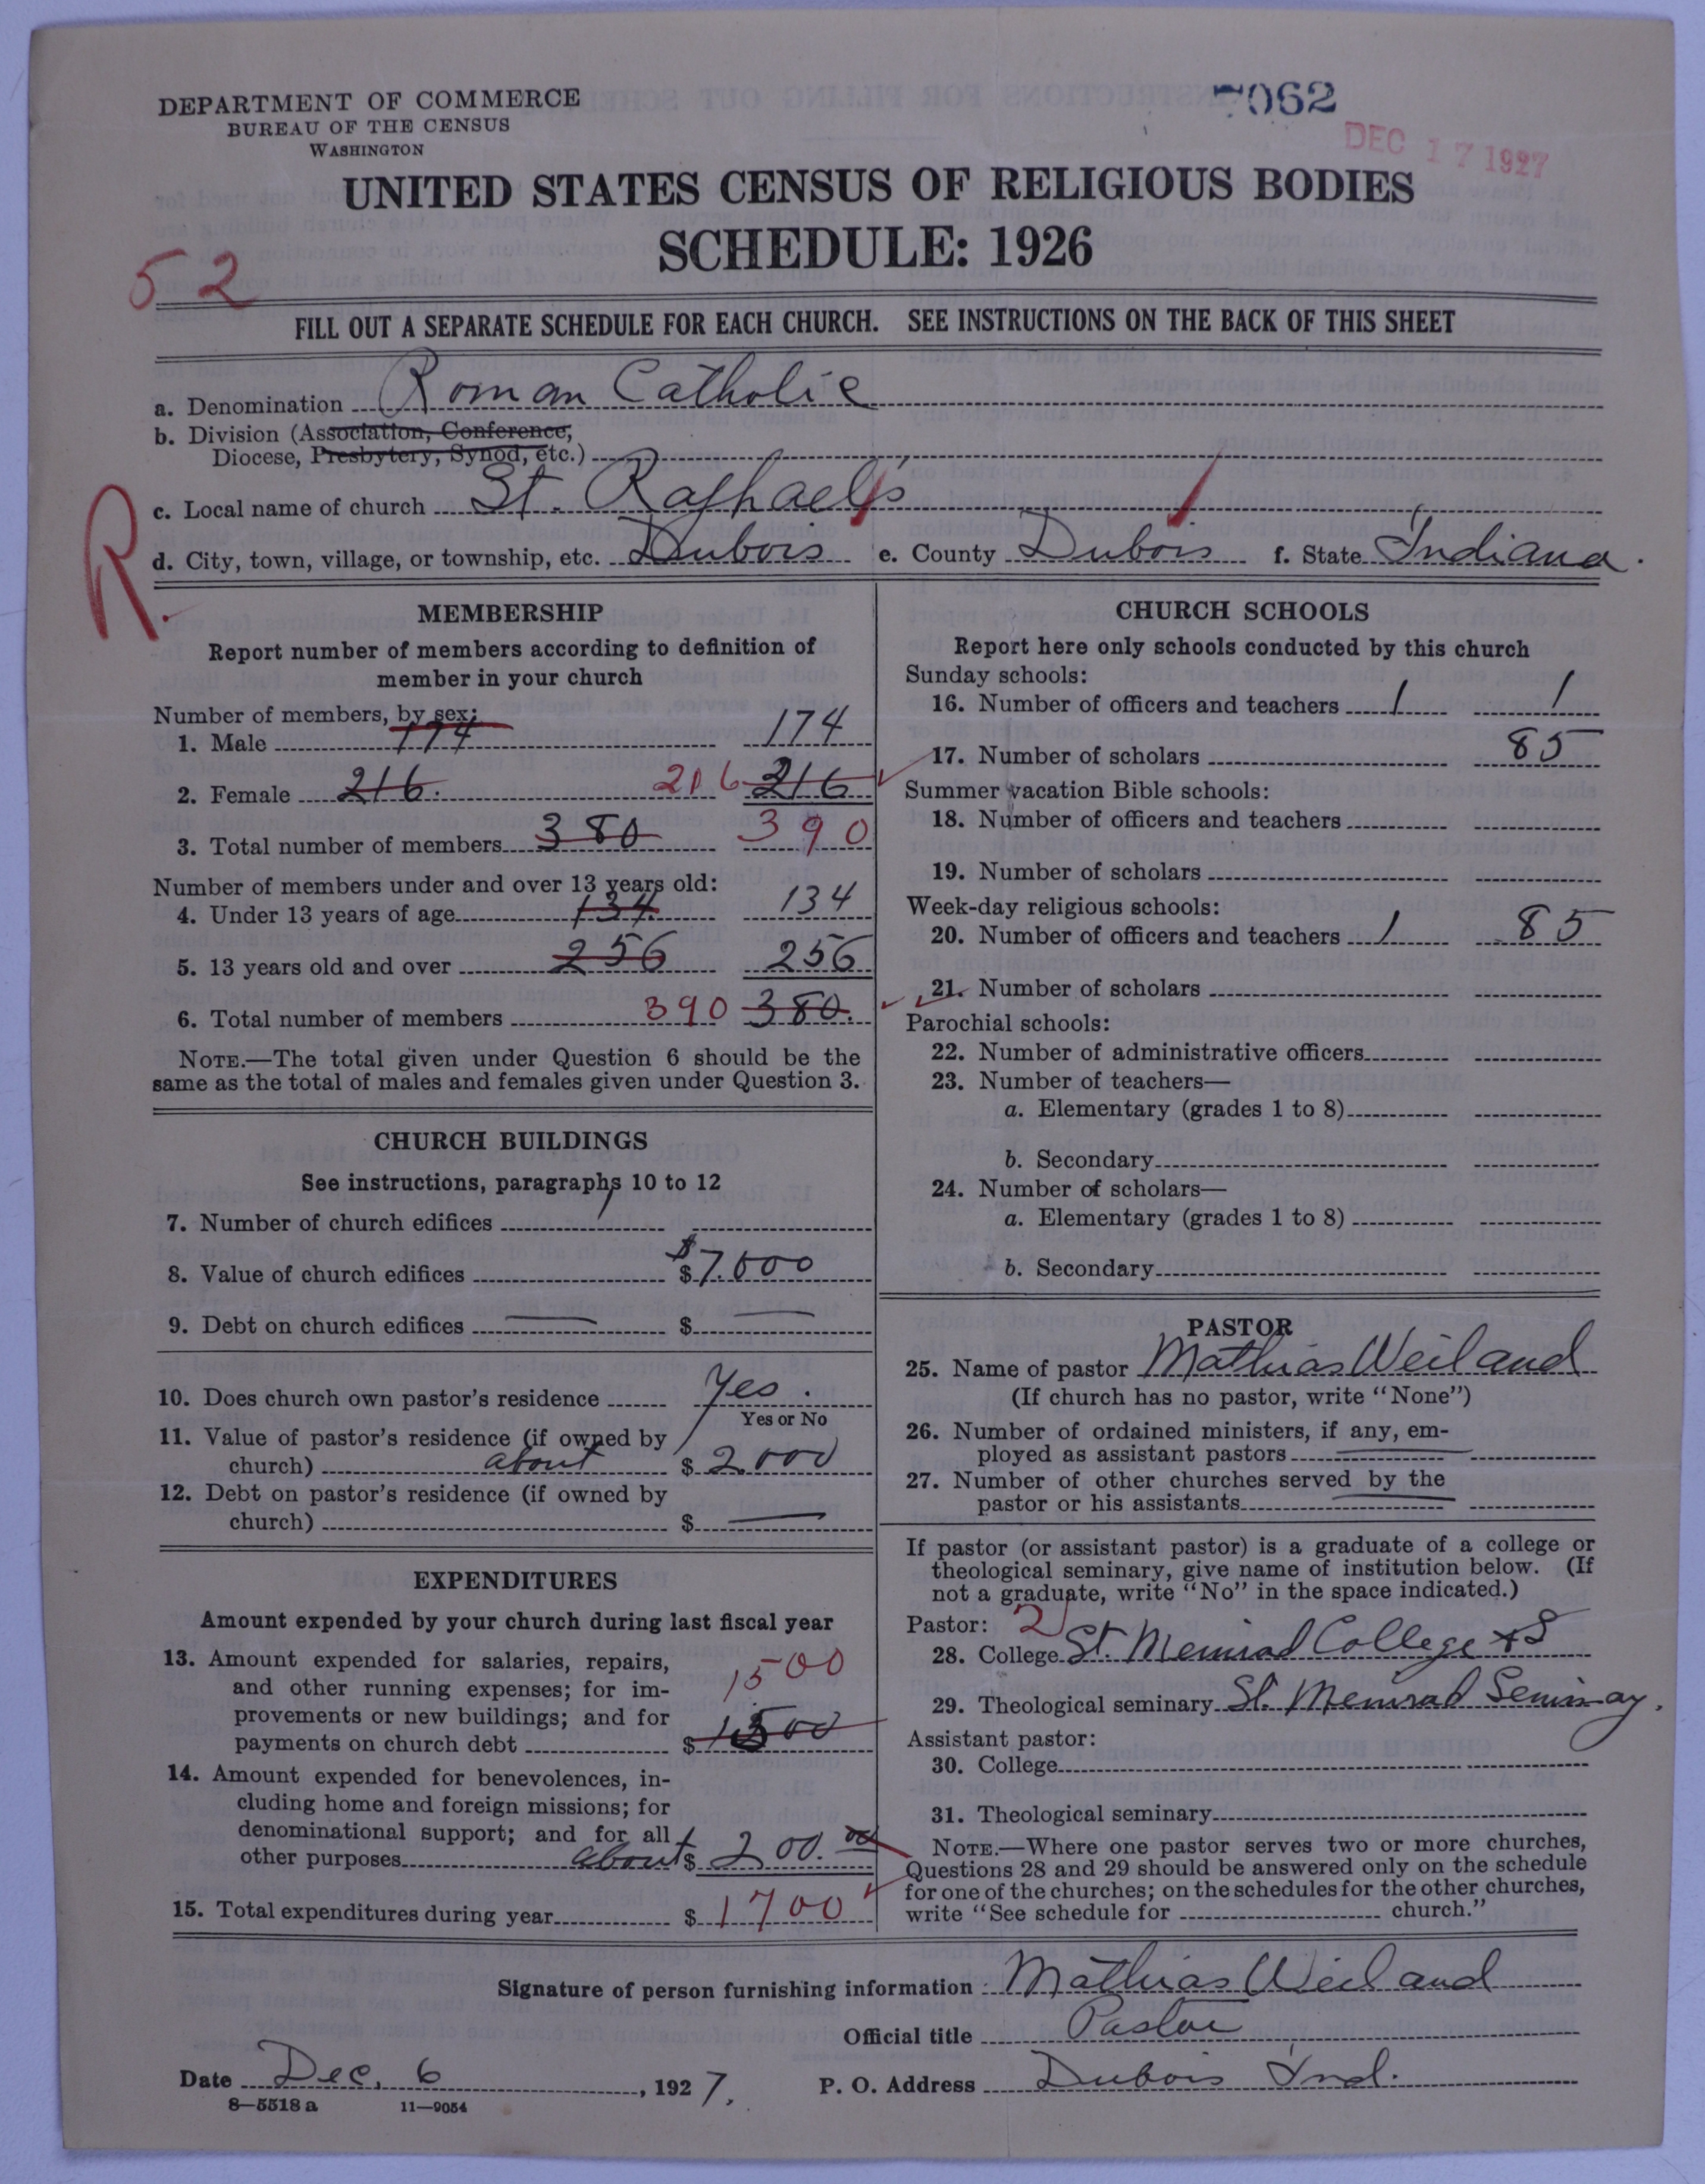 DEPARTMENT OF COMMERCE
BUREAU OF THE CENSUS
WASHINGTON
7062
DEC 17 1927
UNITED STATES CENSUS OF RELIGIOUS BODIES
SCHEDULE: 1926
52
FILL OUT A SEPARATE SCHEDULE FOR EACH CHURCH. SEE INSTRUCTIONS ON THE BACK OF THIS SHEET
a. Denomination Roman Catholic
b. Division (Association, Conference,
Diocese, Presbytery, Synod, etc.)
R.
c. Local name of church St. Raphael's
d. City, town, village, or township, etc. Dubois e. County Dubois f. State Indiana.
MEMBERSHIP
Report number of members according to definition of
member in your church
Number of members, by sex:
1. Male 174 174
2. Female 216. 216 216
3. Total number of members 380 390
Number of members under and over 13 years old:
4. Under 13 years of age 134 134
5. 13 years old and over 256 256
6. Total number of members 390 380.
NOTE.—The total given under Question 6 should be the
same as the total of males and females given under Question 3.
CHURCH BUILDINGS
See instructions, paragraphs 10 to 12
7. Number of church edifices 1
8. Value of church edifices $ $7.000
9. Debt on church edifices — $ —
10. Does church own pastor's residence Yes.
Yes or No
11. Value of pastor's residence (if owned by
church) about $ 2000
12. Debt on pastor's residence (if owned by
church) $ —
EXPENDITURES
Amount expended by your church during last fiscal year
13. Amount expended for salaries, repairs,
and other running expenses; for im-
provements or new buildings; and for
payments on church debt $ 1500
1500
14. Amount expended for benevolences, in-
cluding home and foreign missions; for
denominational support; and for all
other purposes about $ 200.00
15. Total expenditures during year $ 1700
CHURCH SCHOOLS
Report here only schools conducted by this church
Sunday schools:
16. Number of officers and teachers 1 1
17. Number of scholars 85
Summer vacation Bible schools:
18. Number of officers and teachers
19. Number of scholars
Week-day religious schools:
20. Number of officers and teachers 1 85
21. Number of scholars
Parochial schools:
22. Number of administrative officers
23. Number of teachers—
a. Elementary (grades 1 to 8)
b. Secondary
24. Number of scholars—
a. Elementary (grades 1 to 8)
b. Secondary
PASTOR
25. Name of pastor Mathias Weiland
(If church has no pastor, write "None")
26. Number of ordained ministers, if any, em-
ployed as assistant pastors —
27. Number of other churches served by the
pastor or his assistants —
If pastor (or assistant pastor) is a graduate of a college or
theological seminary, give name of institution below. (If
not a graduate, write "No" in the space indicated.)
Pastor: 2
28. College St. Meinrad College & S
29. Theological seminary St. Meinrad Seminay.
Assistant pastor:
30. College
31. Theological seminary
NOTE.—Where one pastor serves two or more churches,
Questions 28 and 29 should be answered only on the schedule
for one of the churches; on the schedules for the other churches,
write "See schedule for church."
Signature of person furnishing information Mathias Weiland
Official title Pastor
Date Dec. 6, 1927. P. O. Address Dubois Ind.
8—5518 a 11—9054